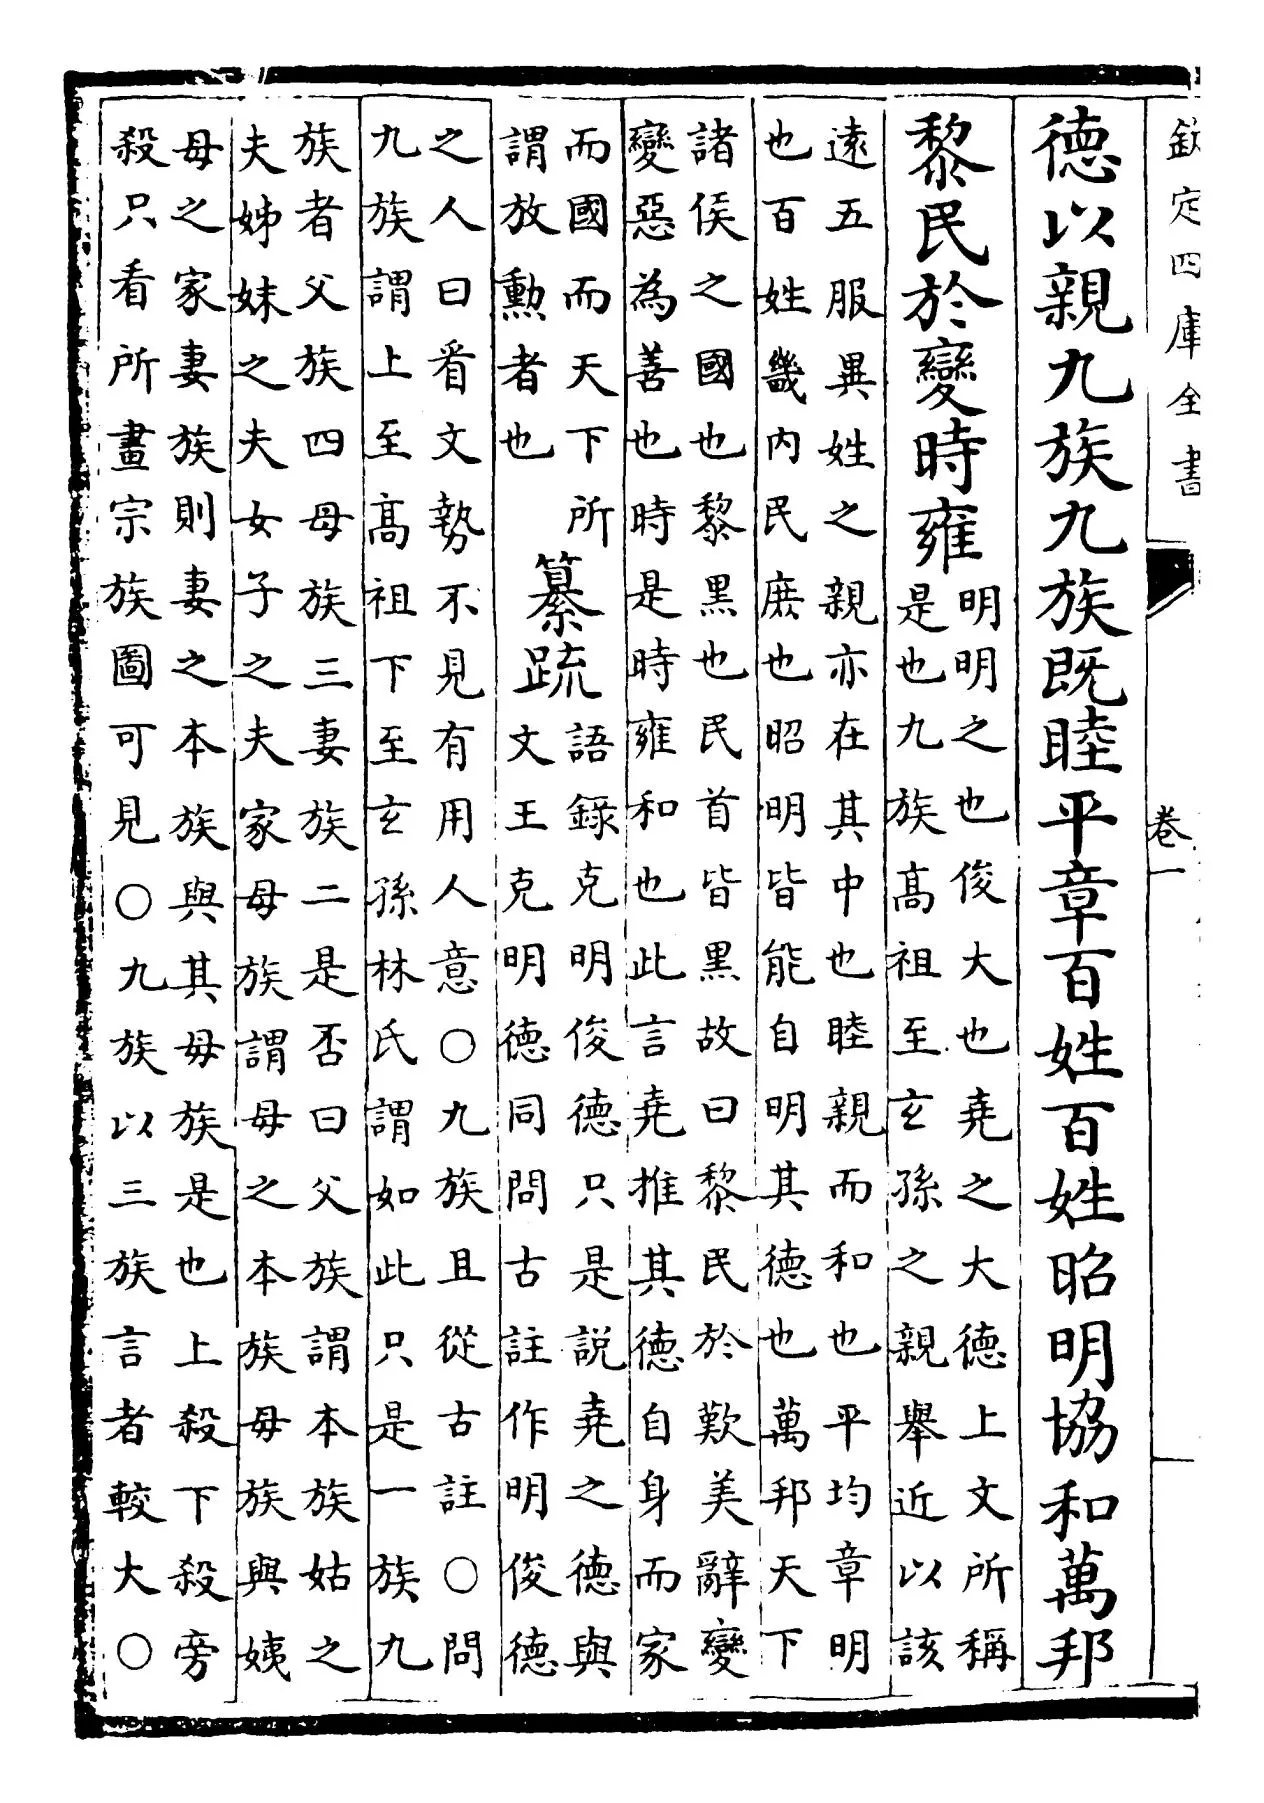 欽定四庫全書
卷一
德以親九族九族既睦平章百姓百姓昭明協和萬邦
黎民於變時雍
明明之也俊大也堯之大德上文所稱
是也九族髙祖至玄孫之親舉近以該
遠五服異姓之親亦在其中也睦親而和也平均章明
也百姓畿内民庶也昭明皆能自明其德也萬邦天下
諸侯之國也黎黒也民首皆黒故曰黎民於歎美辭變
變惡為善也時是時雍和也此言堯推其德自身而家
而國而天下所
謂放勲者也
纂疏
語錄克明俊德只是説堯之德與
文王克明德同問古註作明俊德
之人曰看文勢不見有用人意○九族且從古註○問
九族謂上至髙祖下至玄孫林氏謂如此只是一族九
族者父族四母族三妻族二是否曰父族謂本族姑之
夫姊妹之夫女子之夫家母族謂母之本族母族與姨
母之家妻族則妻之本族與其母族是也上殺下殺旁
殺只看所畫宗族圖可見○九族以三族言者較大○